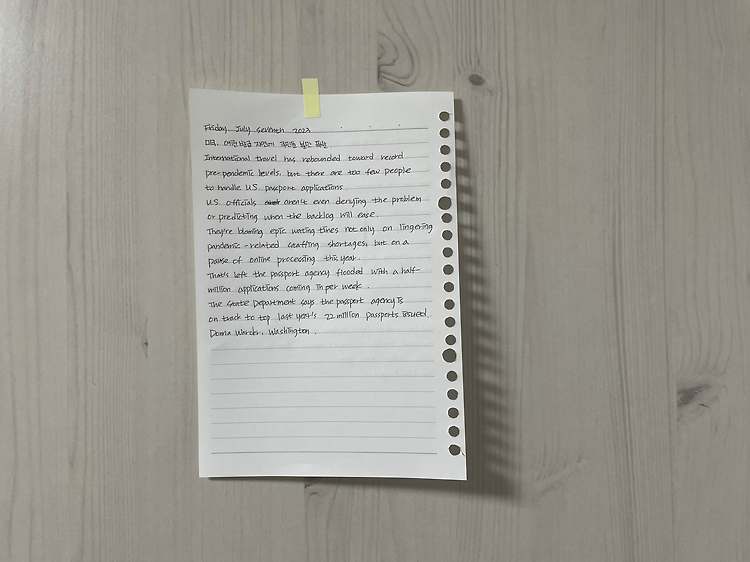 Friday July seventh 2023
미국, 여권 발급 지연에
International travel has rebounded toward record
pre-pendemic levels, but there are too few people
to handle U.S. passport applications
U.S. officials aren't even denying the problem
or predicting when the backlog will ease.
They're blaming epic waiting times not only on lingering
pandemic-related staffing shortages, but on a
pause of online processing this year.
That's left the passport agency flooded with a half-
million applications coming in per week.
The State Department says the passport agency is
on track to top last year's 22 million passports issued.
Donna Warder, Washington.